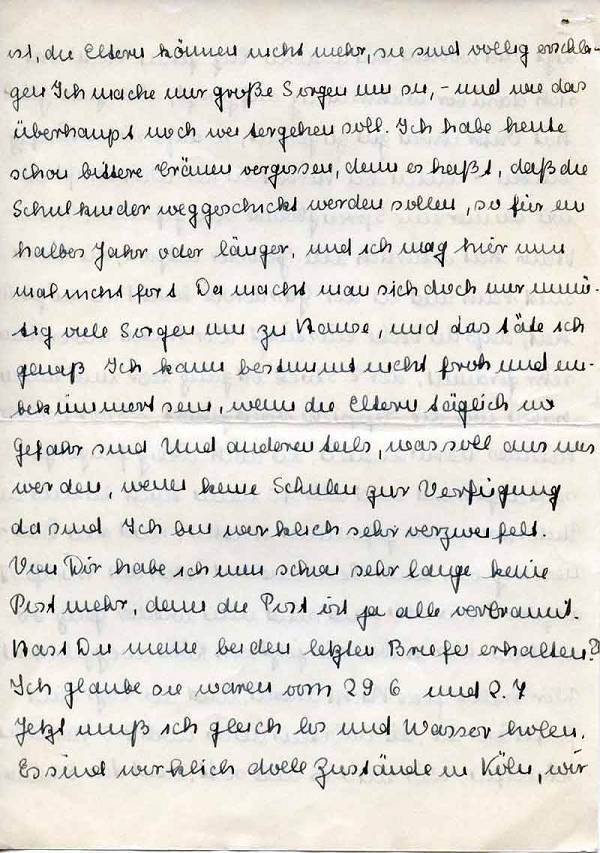 ist, die Eltern können nicht mehr, sie sind völlig erschla-
gen Ich mache mir große Sorgen um sie, - und wie das
überhaupt noch weitergehen soll. Ich habe heute
schon bittere Tränen vergossen, denn es heißt, daß die
Schulkinder weggeschickt werden sollen, so für ein
halbes Jahr oder länger, und ich mag hier nun
mal nicht fort Da macht man sich doch nur unnö-
tig viele Sorgen um zu Hause, und das täte ich
gewiß Ich kann bestimmt nicht froh und un-
bekümmert sein, wenn die Eltern täglich in
Gefahr sind Und anderenteils, was soll aus uns
werden, wenn keine Schulen zur Verfügung
da sind Ich bin wirklich sehr verzweifelt.
Von Dir habe ich nun schon sehr lange keine
Post mehr, denn die Post ist ja alle verbrannt.
Hast Du meine beiden letzten Briefe erhalten?
Ich glaube sie waren vom 29 6 und 2.7
Jetzt muß ich gleich los und Wasser holen.
Es sind wirklich dolle Zustände in Köln, wir